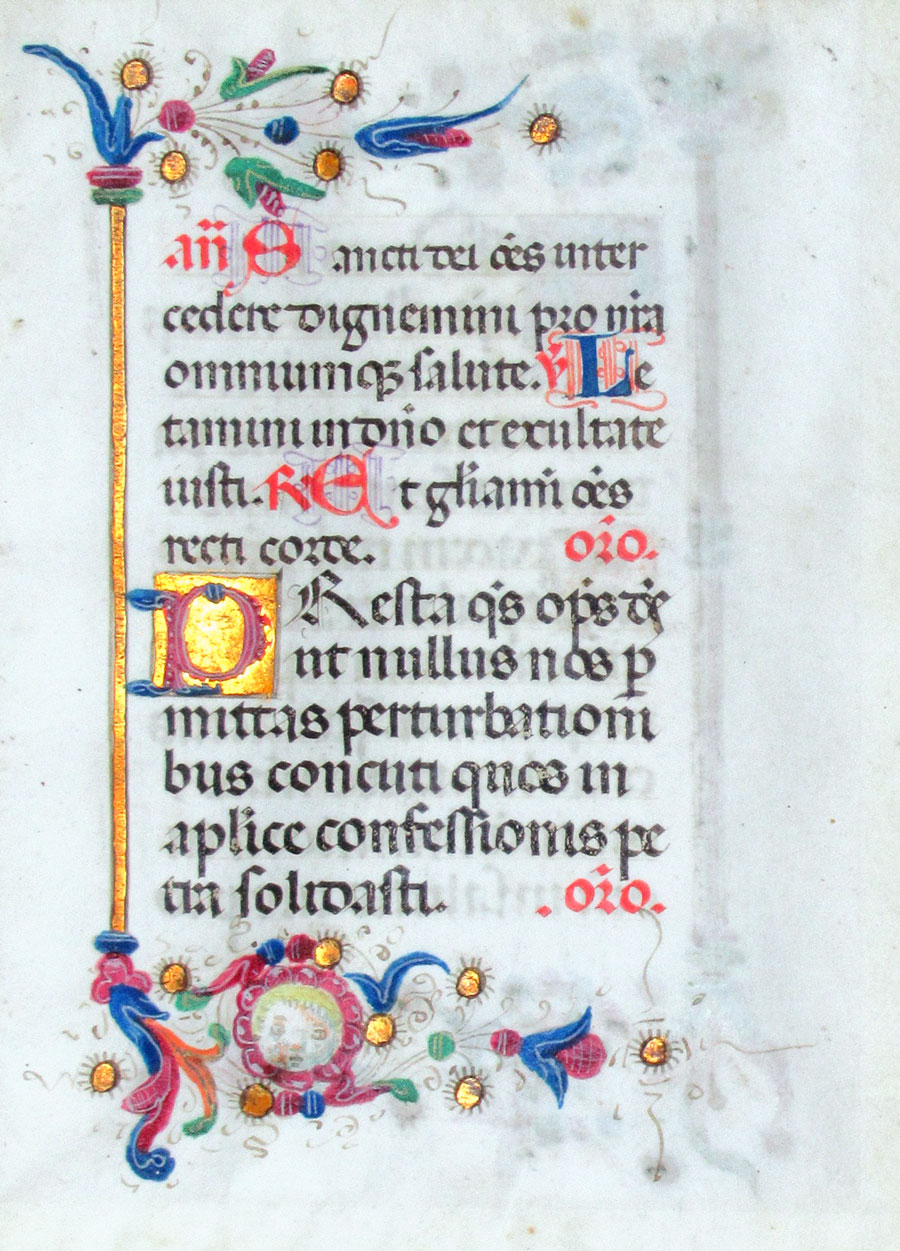 an̄ Sancti dei oēs inter
cedere dignemini pro nr̄a
omniumqꝫ salute. ℣ Le
tamini in dn̄o et exultate
iusti. ℟ Et gl̄iamī oēs
recti corde. or̄o.
PResta q̄s op̄s de᷒
ut nullus nos ꝑ
mittas perturbationi
bus concuti quos in
apl̄ice confessionis pe
tra solidasti. . or̄o.